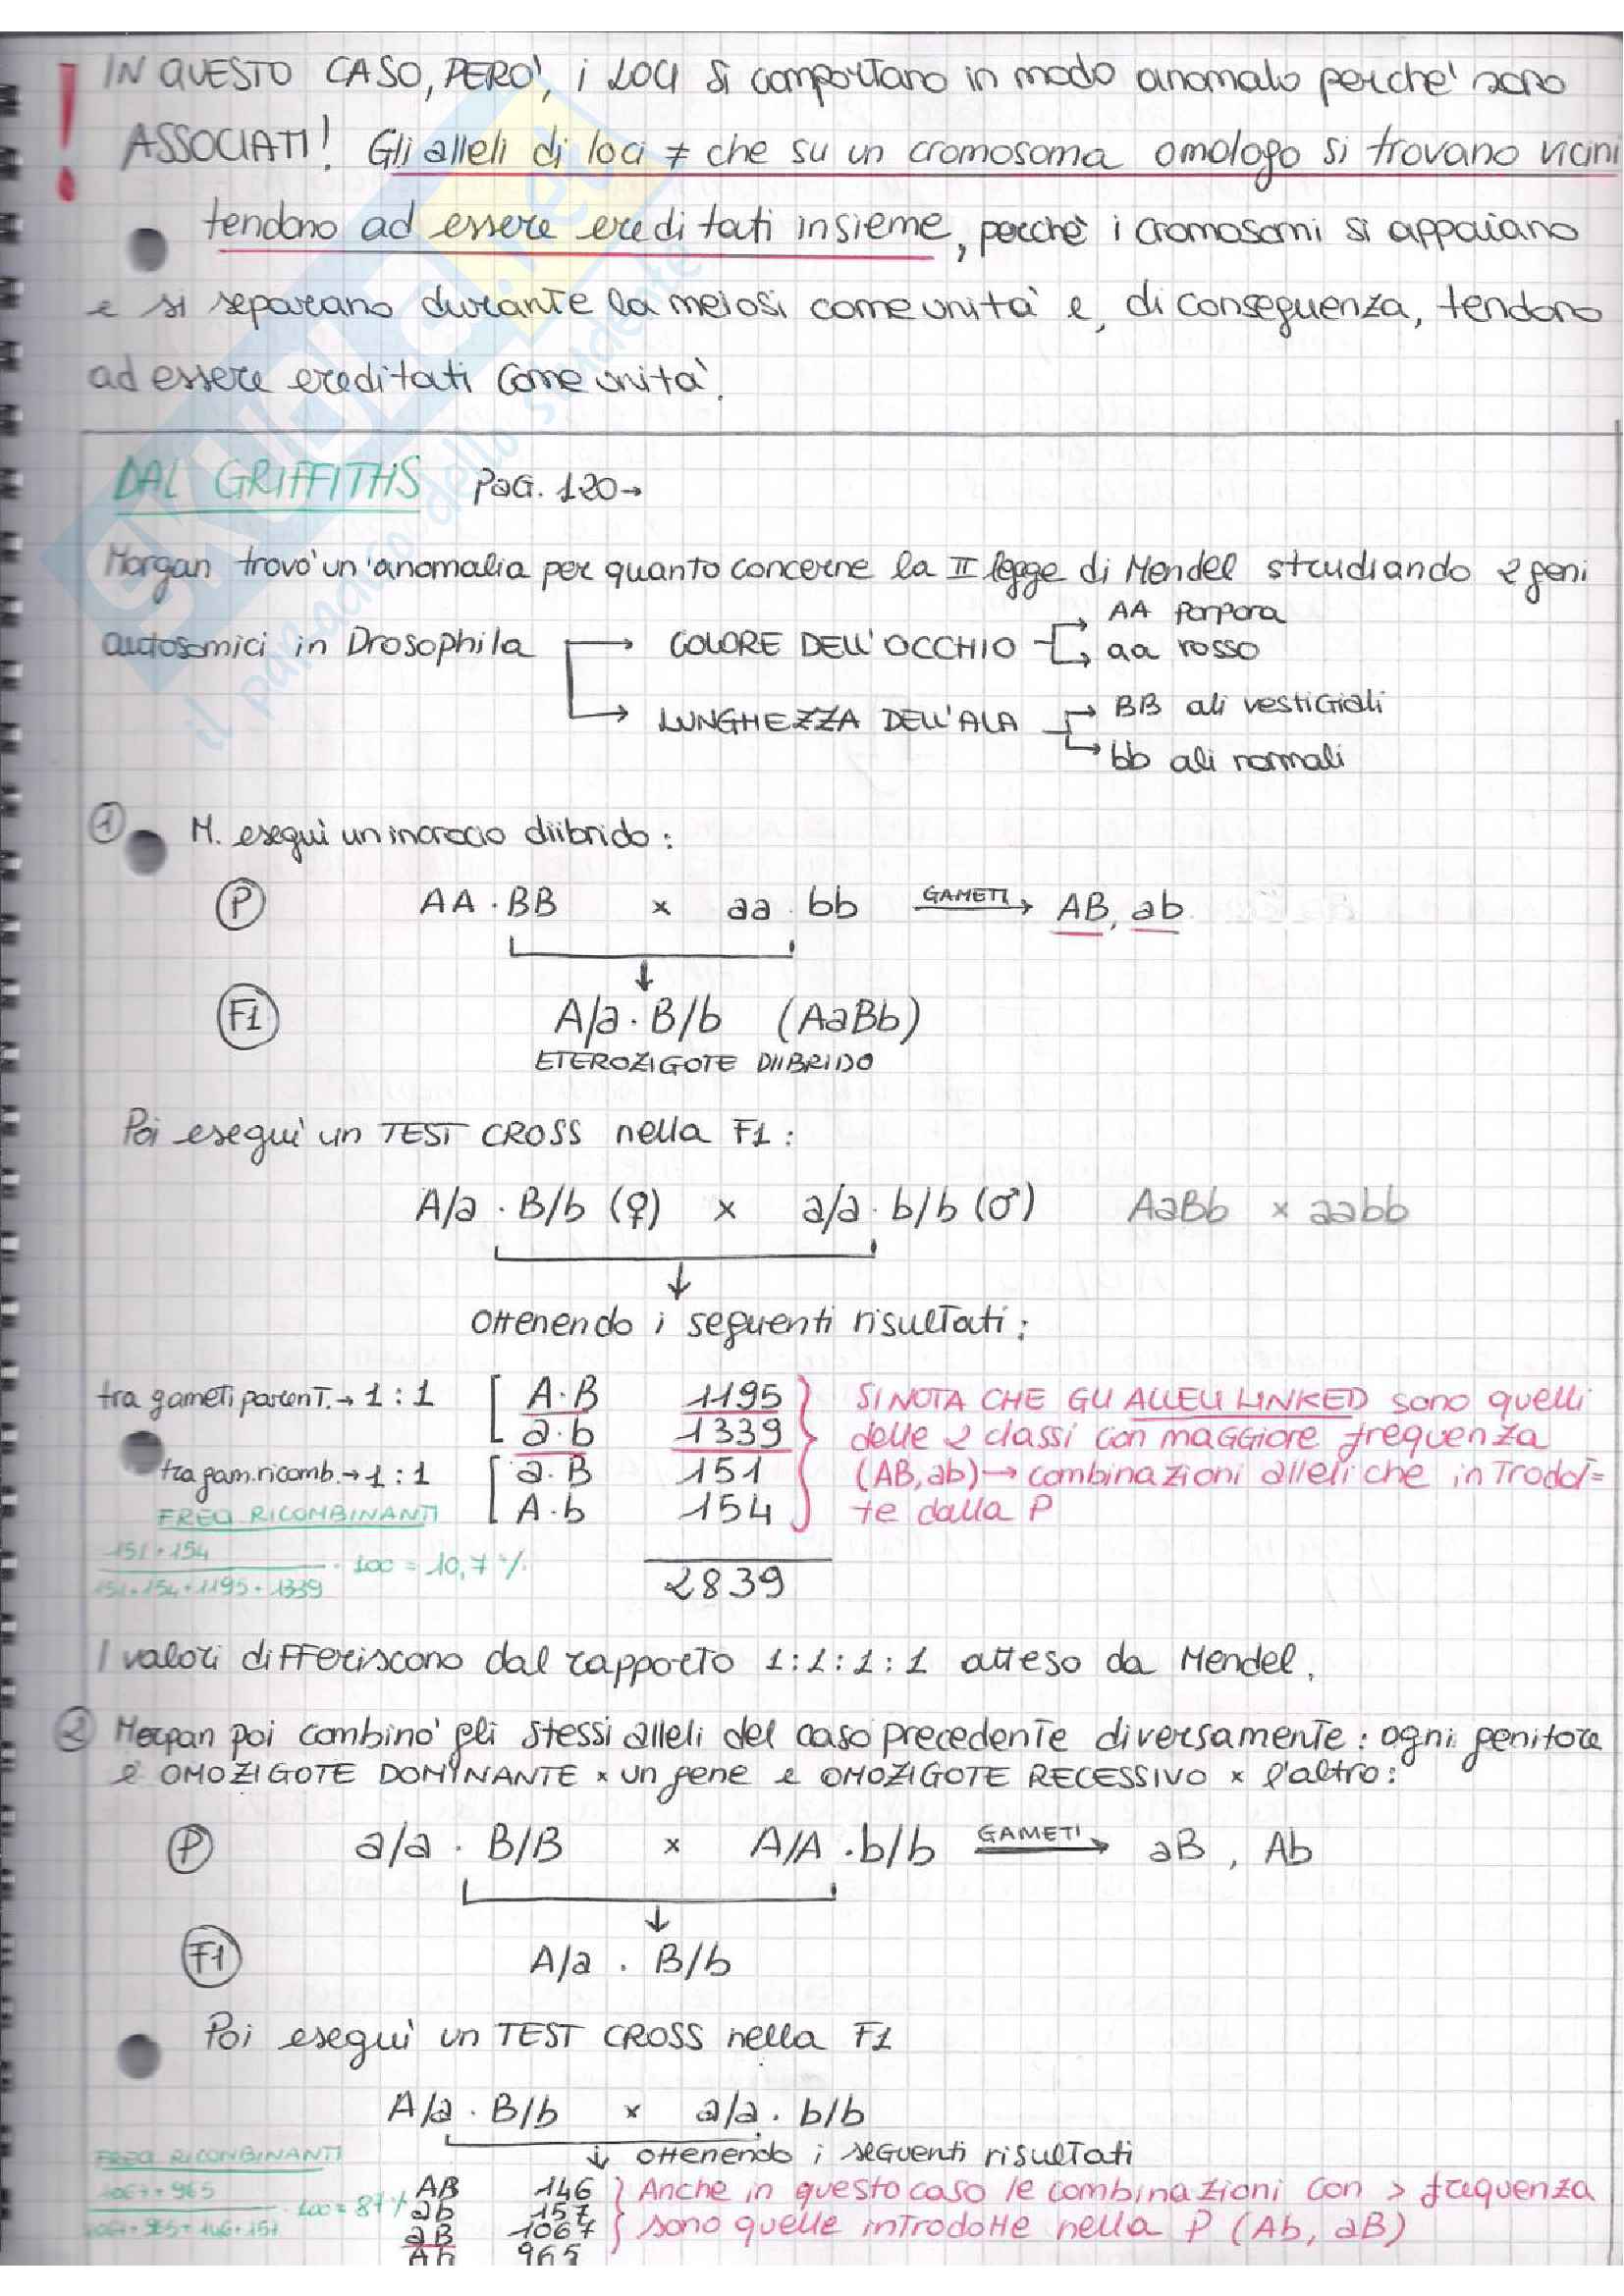 IN QUESTO CASO, PERO', i LOCI si comportano in modo anomalo perche' sono
ASSOCIATI! Gli alleli di loci ≠ che su un cromosoma omologo si trovano vicini
tendono ad essere ereditati insieme, perchè i cromosomi si appaiano
e si separano durante la meiosi come unita' e, di conseguenza, tendono
ad essere ereditati come unita'.
DAL GRIFFITHS PAG. 120→
Morgan trovo' un'anomalia per quanto concerne la II legge di Mendel studiando 2 geni
autosomici in Drosophila → COLORE DELL'OCCHIO → AA porpora
→ aa rosso
→ LUNGHEZZA DELL'ALA → BB ali vestigiali
→ bb ali normali
① M. eseguì un incrocio diibrido:
P AA · BB x aa · bb GAMETI → AB, ab
F1 A/a · B/b (AaBb)
ETEROZIGOTE DIIBRIDO
Poi eseguì un TEST CROSS nella F1:
A/a · B/b (♀) x a/a · b/b (♂) AaBb x aabb
Ottenendo i seguenti risultati:
tra gameti parenT. → 1 : 1 A·B 1195 SI NOTA CHE GLI ALLELI LINKED sono quelli
a·b 1339 delle 2 classi con maggiore frequenza
tra gam. ricomb. → 1 : 1 a·B 151 (AB, ab) → combinazioni alleliche introdot=
FREQ RICOMBINANTI A·b 154 te dalla P
151+154
151+154+1195+1339 · 100 = 10,7 %
2839
I valori differiscono dal rapporto 1:1:1:1 atteso da Mendel.
② Morgan poi combino' gli stessi alleli del caso precedente diversamente: ogni genitore
è OMOZIGOTE DOMINANTE x un gene e OMOZIGOTE RECESSIVO x l'altro:
P a/a · B/B x A/A · b/b GAMETI → aB, Ab
F1 A/a . B/b
Poi eseguì un TEST CROSS nella F1
A/a · B/b x a/a · b/b
↓ ottenendo i seguenti risultati
FREQ RICOMBINANTI
1067+965
1067+965+146+157 · 100 = 87 %
AB 146 Anche in questo caso le combinazioni con > frequenza
ab 157
aB 1067 sono quelle introdotte nella P (Ab, aB)
Ab 965
SKUOLA.net
il paradiso dello studente